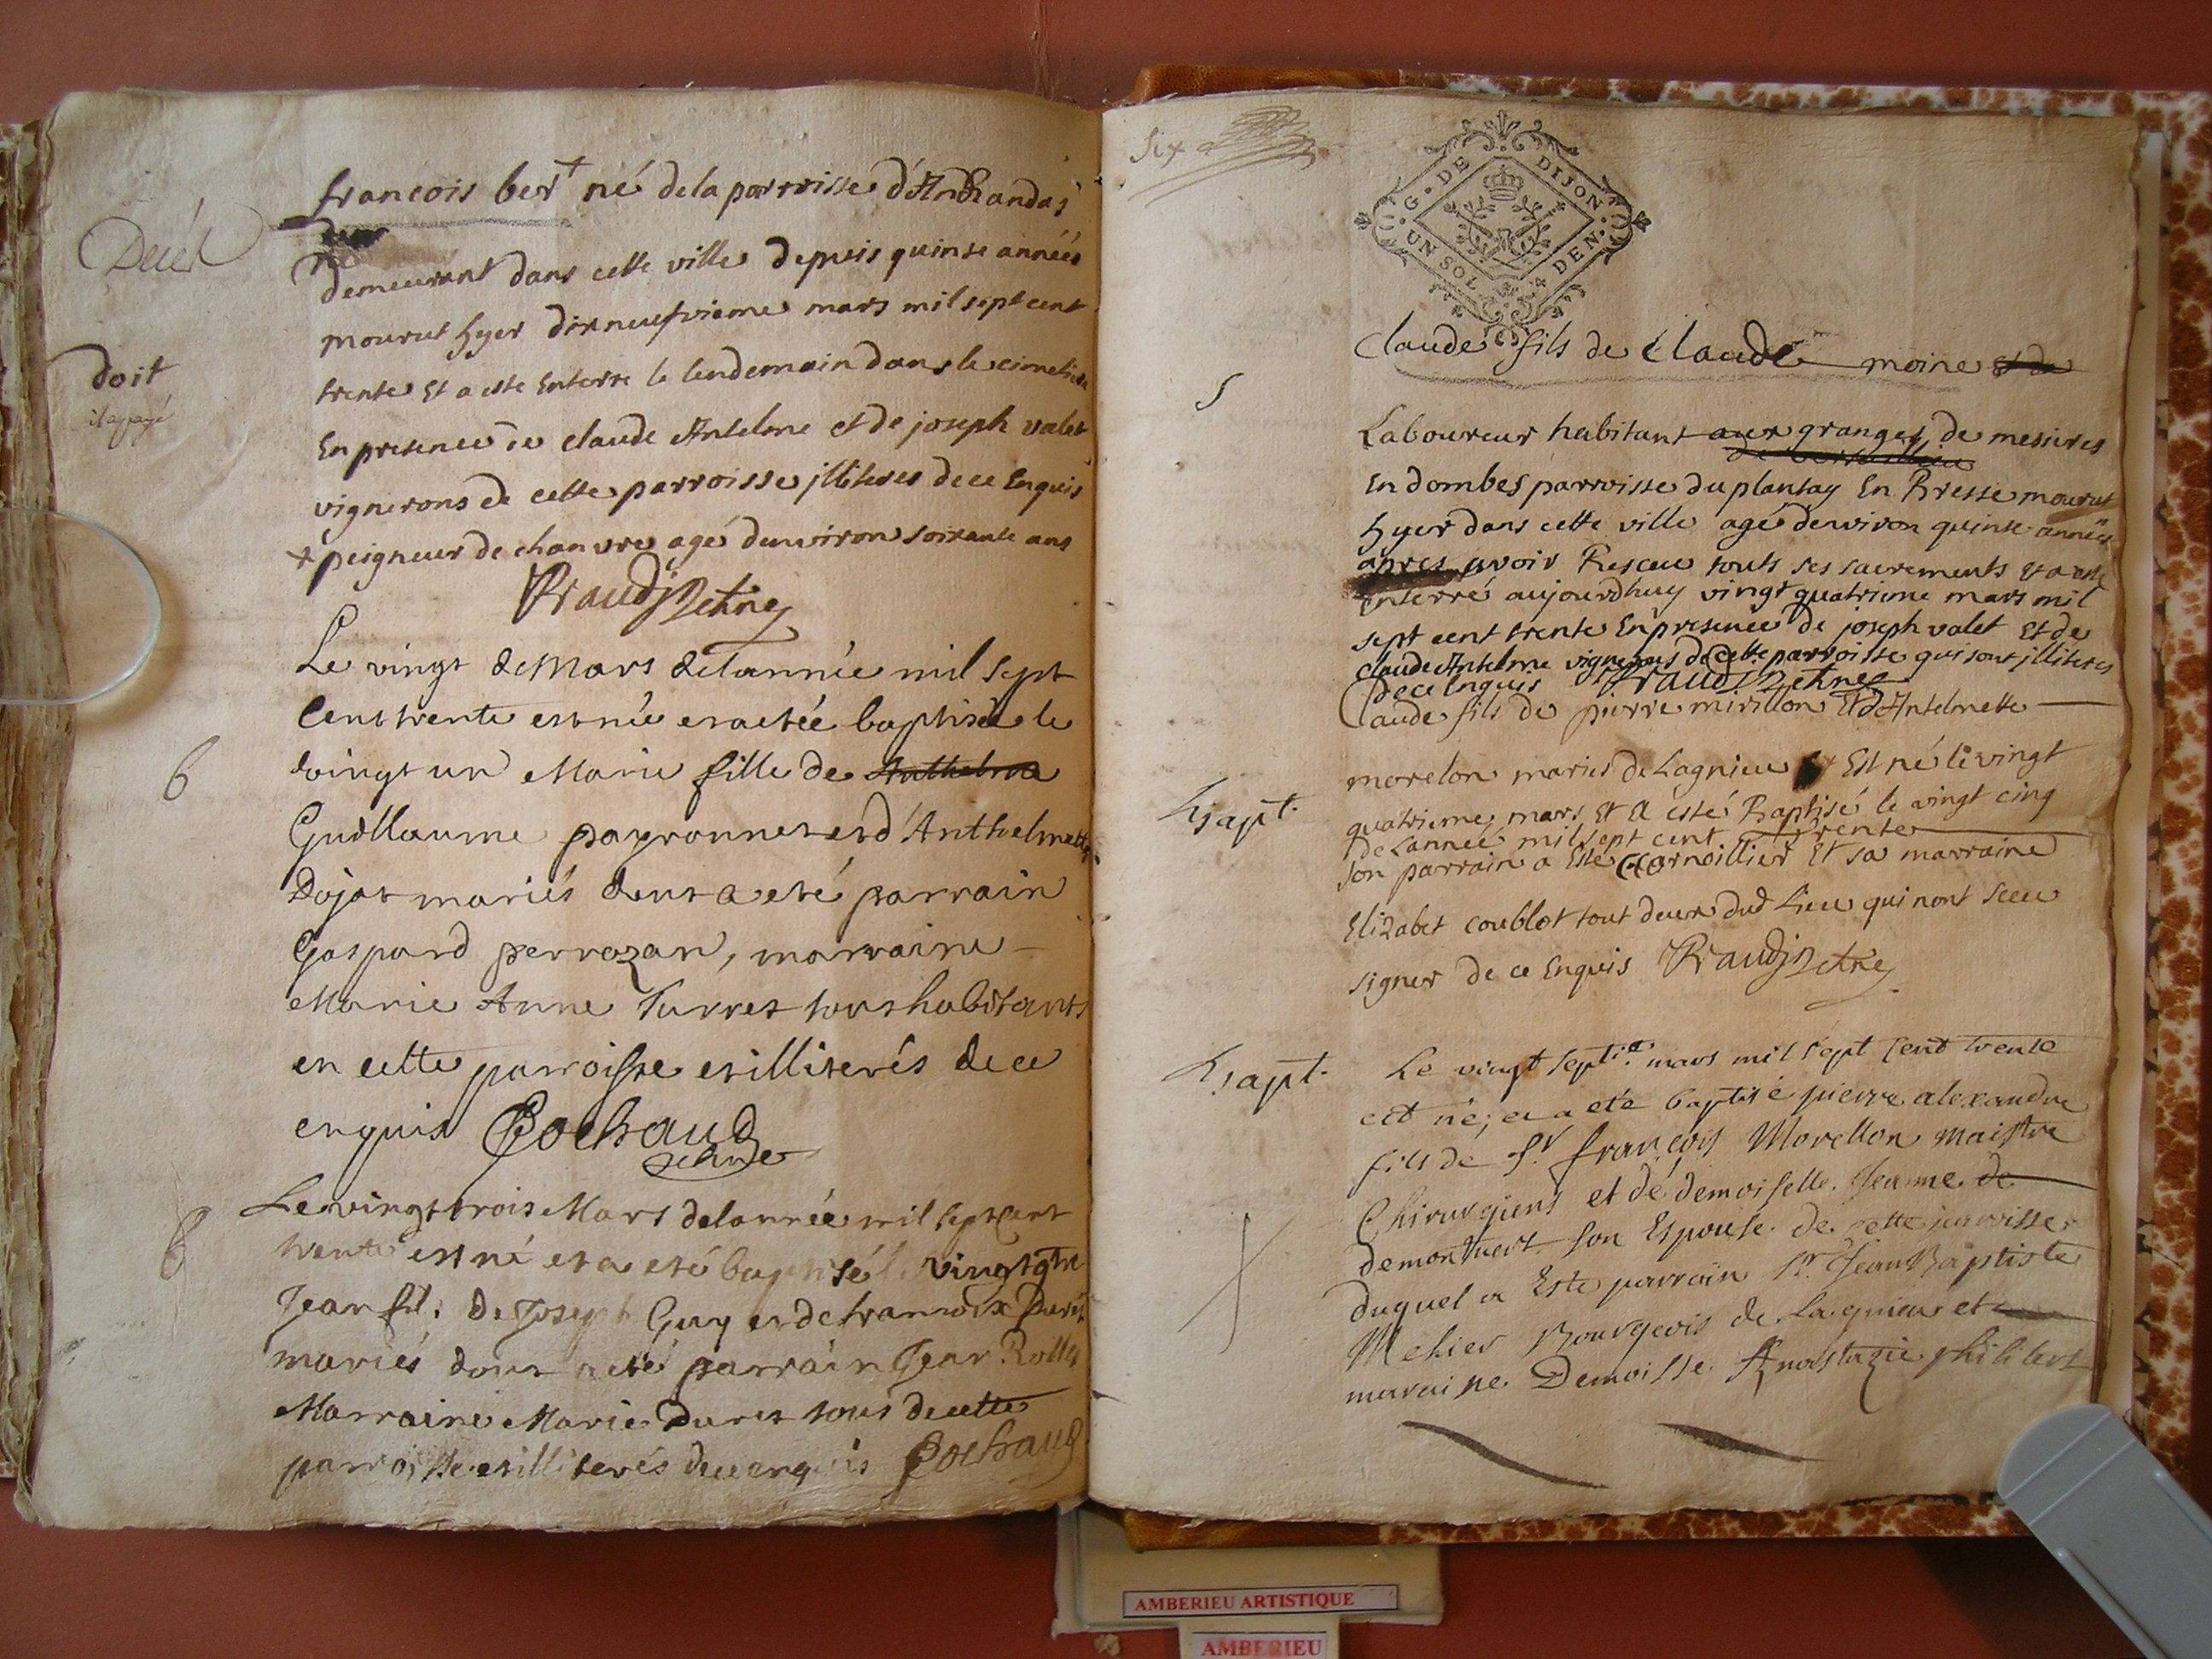 françois ber† né de la parroisse d'Ambandas
Decés
demeurant dans cette ville depuis quinse années
mourut hyer dixneufvieme mars mil sept cent
doit
trente Et a este Enterre le lendemain dans le cimetiere
il a payé
En presence de claude Antelme et de joseph valet
vignerons de cette parroisse jlliteres de ce Enquis
+ peigneur de chanvre agé denviron soixante ans
Le vingt de Mars de lannée mil sept
Cens trente est née et a etée baptisée le
vingt un Marie fille de Anthelme
6
Guillaume payronnet et d'Anthelmette
Dojat mariés dont a eté parrain
Gaspard perrozan, marraine
Marie Anne Turret tous habitants
en cette parroisse et illiterés de ce
enquis Cochaud
Le vingt trois Mars de lannée mil sept Cent
6
trente est né et a eté baptisé le vingt
Jean fil. de Joseph Guy et de francoise
mariés dont a eté parrain Jean Rollet
Marraine Marie Duret tous de cette
parroisse et illiterés de ce enquis Cochaud
six
G. DE DIJON
UN SOL 4 DEN.
Claude fils de Claude moine et de
5
Laboureur habitant aux granges de messires
En dombes parroisse du plantay En Bresse mourut
hyer dans cette ville agé denviron quinse années
apres avoir Resceu touts ses sacrements Et a esté
Enterré aujourdhuy vingt quatrieme mars mil
sept cent trente En presence de joseph valet Et de
claude Antelme vignerons de Cette parroisse qui sont jlliteres
de ce Enquis
Claude fils de pierre mirillon Et d'Antelmette
morelon mariés de Lagnieu Est né le vingt
Bapt.
quatrieme mars Et a esté Baptisé le vingt cinq
de Lannée mil sept cent trente
son parrain a Esté Cornillier Et sa marraine
Elizabet coublot tout deux dud Lieu qui nont sceu
signer de ce Enquis
Bapt.
Le vingt septie. mars mil sept cent trente
est né, et a eté baptisé pierre alexandre
fils de Sr. françois Morellon maistre
Chirurgiens et de demoiselle Jeanne de
demontuert son Espouse de cette parroisse
duquel a Este parrain Sr. Jean Baptiste
Mehier Bourgeois de Lagnieu et
maraine Demoisse Anastazie philibert
AMBERIEU ARTISTIQUE
AMBERIEU